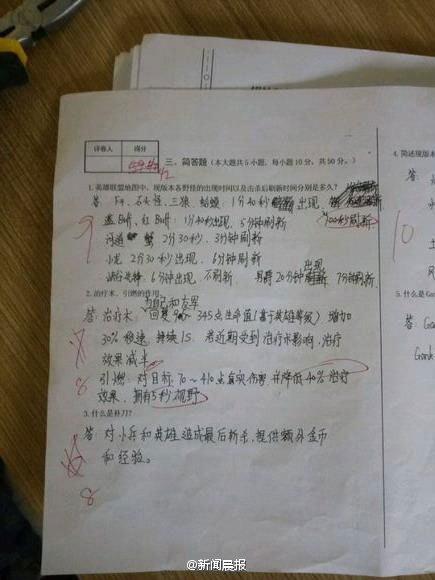 评卷人 得分
三、简答题（本大题共5小题，每小题10分，共50分。）
1.英雄联盟地图中，现版本各野怪的出现时间以及击杀后刷新时间分别是多久？
答：F4、石头怪、三狼、蛤蟆：1分40秒出现，100秒刷新
蓝Buff、红Buff：1分40秒出现，5分钟刷新
河道蟹 2分30秒，3分钟刷新
小龙 2分30秒出现，6分钟刷新
峡谷先锋 6分钟出现，不刷新 男爵20分钟出现 7分钟刷新
9
2.治疗术、引燃的作用
答：治疗术：为自己和友军回复90～345点生命值（基于英雄等级）增加
30%移速，持续1S。若近期受到治疗术影响，治疗
效果减半
引燃：对目标70～410点真实伤害并降低40%治疗
效果，拥有5秒视野
8
3.什么是补刀？
答：对小兵和英雄造成最后斩杀，提供额外金币
和经验。
8
4.简述现
答：
10
5.什么是G
答：Ga
Gank
@新闻晨报